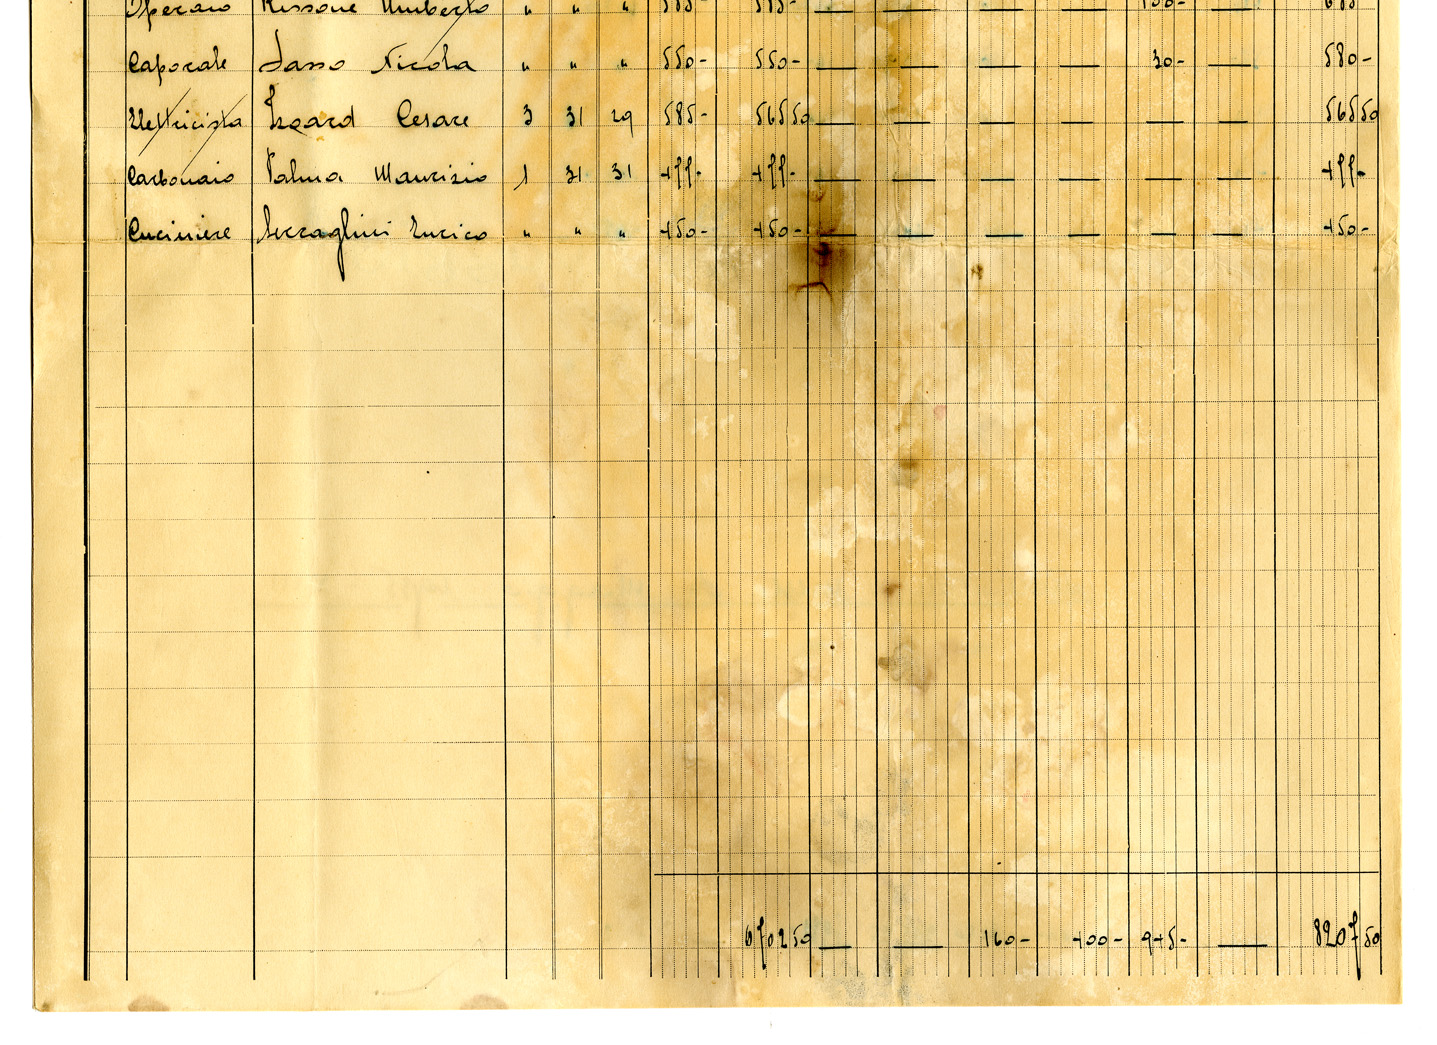 Operaio Rissone Umberto " " " 585- 585- — — — — — 685-
Caporale Sasso Nicola " " " 550- 550- — — — — 30- — 580-
Elettricista Isoard Cesare 3 31 29 585- 565 50 — — — — — — 565 50
Carbonaio Palma Maurizio 1 31 31 477- 477- — — — — — — 477-
Cuciniere Enrico " " " 450- 450- — — — — — — 450-
6702 50 — — 160- 400- 945- — 8207 50